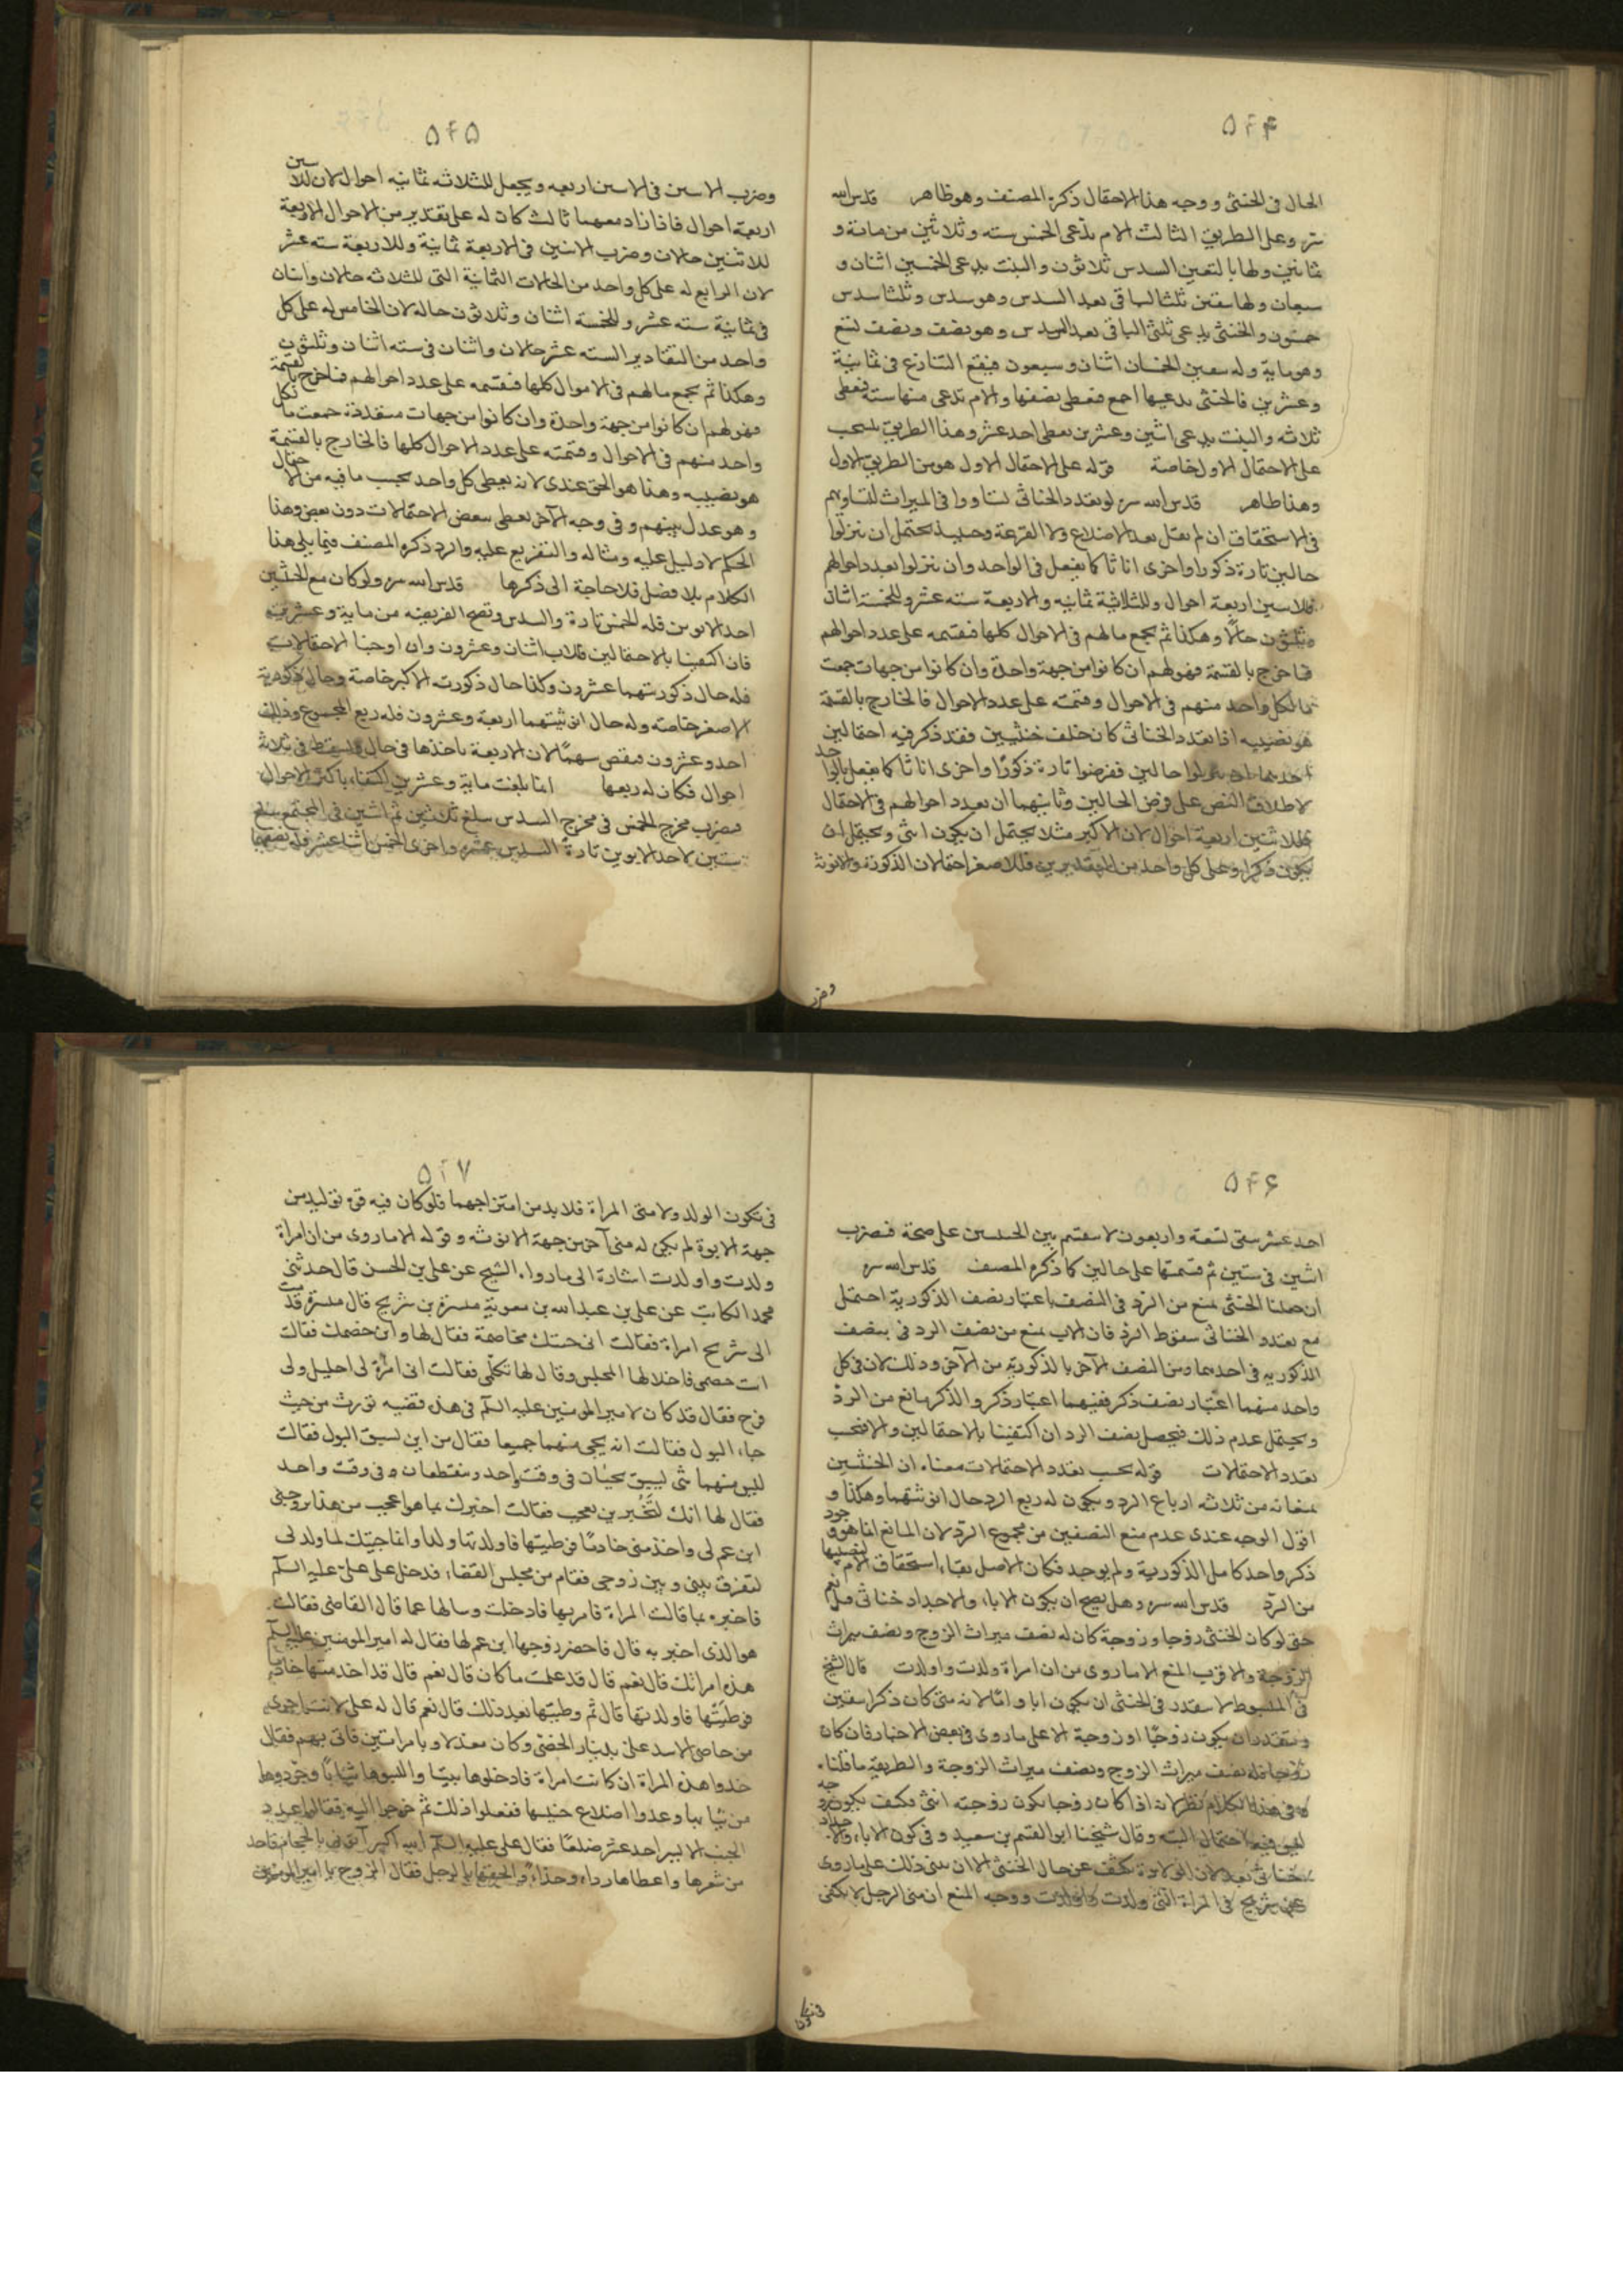 ۵۲۴
الحال فى الخنثى ووجه هذا الاحتمال ذكره المصنف وهو ظاهر قدس الله
سره وعلى الطريق الثالث الام تدعى الخمس سته وثلاثين من مائة و
ثمانين ولها باليقين السدس ثلاثون والبنت يدعى الخمسين اثنان و
سبعان ولها بيقين ثلثا الباقى بعد السدس وهو سدس وثلثا سدس
خمسون والخنثى يدعى ثلثى الباقى بعد السدس وهو نصف ونصف تسع
وهو ماية وله بيقين الخمسان اثنان وسبعون فيقع التنازع فى ثمانية
وعشرين فالخنثى يدعيها اجمع فيعطى نصفها والام تدعى منها سته فيعطى
ثلاثه والبنت يدعى اثنين وعشرين يعطى احد عشر وهذا الطريق ينسحب
على الاحتمال الاول خاصة قوله على الاحتمال الاول هو من الطريق الاول
وهذا ظاهر قدس الله سره لو تعدد الخناثى تساووا فى الميراث لتساويهم
فى الاستحقاق ان لم نقل بعد الاضلاع ولا القرعة وحينئذ يحتمل ان ينزلوا
حالين تارة ذكورا واخرى اناثا كما يفعل فى الواحد وان ينزلوا بعدد احوالهم
فللاثنين اربعة احوال وللثلاثة ثمانيه والاربعة سته عشر وللخمسة اثنان
وثلثون حالا وهكذا ثم يجمع مالهم فى الاحوال كلها فيقسمه على عدد احوالهم
فما خرج بالقسمة فهو لهم ان كانوا من جهة واحدة وان كانوا من جهات جمعت
ما لكل واحد منهم فى الاحوال وقسمته على عدد الاحوال فالخارج بالقسمة
هو نصيبه اذا تعدد الخناثى كان خلف خنثيين فقد ذكر فيه احتمالين
احدهما ان ينزلوا حالين ففرضوا تارة ذكورا واخرى اناثا كما يفعل بالواحد
لاطلاق النص على فرض الحالين وثانيهما ان يعدد احوالهم فى الاحتمال
فللاثنين اربعة احوال لان الاكبر مثلا يحتمل ان يكون انثى ويحتمل ان
يكون ذكرا وعلى كل واحد من التقديرين فللاصغر احتمالان الذكورة والانوثة
وضرب
۵۲۵
وضرب الاثنين فى الاثنين اربعه ويجعل للثلاثه ثمانيه احوال لان للاثنين
اربعة احوال فاذا زاد معهما ثالث كان له على تقدير من الاحوال الاربعة
للاثنين حالان وضرب الاثنين فى الاربعة ثمانية وللاربعة سته عشر
لان الرابع له على كل واحد من الحالات الثمانية التى للثلاثه حالان واثنان
فى ثمانية سته عشر وللخمسة اثنان وثلاثون حاله لان الخامس له على كل
واحد من التقادير السته عشر حالان واثنان فى سته اثنان وثلثون
وهكذا ثم يجمع مالهم فى الاحوال كلها فيقسمه على عدد احوالهم فما خرج بالقسمة
فهو لهم ان كانوا من جهة واحدة وان كانوا من جهات متعددة جمعت ما لكل
واحد منهم فى الاحوال وقسمته على عدد الاحوال كلها فالخارج بالقسمة
هو نصيبه وهذا هو الحق عندى لانه يعطى كل واحد بحسب ما فيه من الاحتمال
وهو عدل بينهم وفى وجه الآخر يعطى بعض الاحتمالات دون بعض وهذا
الحكم لا دليل عليه ومثاله والتفريع عليه والرد ذكره المصنف فيما يلى هذا
الكلام بلا فصل فلا حاجة الى ذكرها قدس الله سره ولو كان مع الخنثيين
احد الابوين فله الخمس تارة والسدس وتصح الفريضه من ماية وعشرين
فان اكتفينا بالاحتمالين فللاب اثنان وعشرون وان اوجبنا الاحتمالات
فله حال ذكوريتهما عشرون وكذا حال ذكورية الاكبر خاصة وحال ذكورية
الاصغر خاصه وله حال انثيتهما اربعة وعشرون فله ربع المجموع وذلك
احد وعشرون فينقص سهما لان الاربعة ياخذها فى حال ويسقط فى ثلاثة
احوال فكان له ربعها انما بلغت ماية وعشرين اكتفاء باكثر الاحوال
فيضرب مخرج الخمس فى مخرج السدس يبلغ ثلاثين ثم اثنين فى المجتمع يبلغ
ستين لاحد الابوين تارة السدس عشره واخرى الخمس اثنا عشر فله نصفهما
۵۲۶
احد عشر يبقى تسعة واربعون لا ينقسم بين الخنثيين على صحة فيضرب
اثنين فى ستين ثم قسمتها على حالين كما ذكره المصنف قدس الله سره
ان جعلنا الخنثى يمنع من الرد فى النصف باعتبار نصف الذكورية احتمل
مع تعدد الخناثى سقوط الرد فان الاب يمنع من نصف الرد فى بنصف
الذكوريه فى احدهما ومن النصف الآخر بالذكوريه من الآخر وذلك لان فى كل
واحد منهما اعتبار نصف ذكر ففيهما اعتبار ذكر والذكر مانع من الرد
ويحتمل عدم ذلك فيحصل نصف الرد ان اكتفينا بالاحتمالين والا فبحسب
تعدد الاحتمالات قوله بحسب تعدد الاحتمالات معناه ان الخنثيين
يمنعانه من ثلاثه ارباع الرد ويكون له ربع الرد حال انثيتهما وهكذا و
اقول الوجه عندى عدم منع النصفين من مجموع الرد لان المانع انما هو وجود
ذكر واحد كامل الذكورية ولم يوجد فكان الاصل بقاء استحقاق الام لنصيبها
من الرد قدس الله سره وهل يصح ان يكون الاباء والاجداد خناثى قيل نعم
حتى لو كان الخنثى زوجا وزوجة كان له نصف ميراث الزوج ونصف ميراث
الزوجة والاقرب المنع الا ما روى من ان امراة ولدت واولدت قال الشيخ
فى المبسوط لا يتقدر فى الخنثى ان يكون ابا واما لانه متى كان ذكرا بيقين
ويتقدر ان يكون زوجا او زوجة الا على ما روى فى بعض الاخبار فان كان
زوجا فله نصف ميراث الزوج ونصف ميراث الزوجة والطريقة ما قلناه
وفى هذا الكلام نظر لانه اذا كان زوجا يكون زوجته انثى فكيف يكون زوجه
ليس فيه احتمال البته وقال شيخنا ابو القسم بن سعيد وفى كون الاباء والاجداد
خناثى بعد لان الولادة يكشف عن حال الخنثى الا ان يبنى ذلك على ما روى
عن شريح فى المراة التى ولدت واولدت ووجه المنع ان منى الرجل لا يكفى
فى تكون
۵۲۷
فى تكون الولد ولا منى المراة فلا بد من امتزاجهما فلو كان فيه قوة توليد من
جهة الابوة لم يكن له منى آخر من جهة الانوثه وقوله الا ما روى من ان امراة
ولدت واولدت اشارة الى ما رواه الشيخ عن على بن الحسن قال حدثنى
محمد الكاتب عن على بن عبد الله بن معوية ميسرة بن شريح قال ميسرة قدمت
الى شريح امراة فقالت انى جئتك مخاصمة فقال لها واين خصمك فقالت
انت خصمى فاخلا لها المجلس وقال لها تكلمى فقالت انى امرأة لى احليل ولى
فرج فقال قد كان لامير المومنين عليه السلم فى هذه قضيه تورث من حيث
جاء البول فقالت انه يجى منهما جميعا فقال من اين يسبق البول فقالت
ليس منهما شى يسبق يجيئان فى وقت واحد وينقطعان وفى وقت واحد
فقال لها انك لتخبرين بعجب فقالت اخبرك بما هو اعجب من هذا تزوجنى
ابن عم لى واخذ منى خادما فوطيتها فاولدتها ولدا وانما جئتك لما ولد لى
لتفرق بينى وبين زوجى فقام من مجلس القضاء فدخل على على عليه السلم
فاخبره بما قالت المراة فامر بها فادخلت وسالها عما قال القاضى فقالت
هو الذى اخبر به قال فاحضر زوجها ابن عم لها فقال له امير المومنين عليه السلم
هذه امراتك قال نعم قال قد علمت ما كان قال نعم قال قد اخدمتها خادما
فوطيتها فاولدتها قال ثم وطيتها بعد ذلك قال نعم قال له على لانت اجرى
من خاصى الاسد على بدينار الخصى وكان معدلا وبامراتين فاتى بهم فقال
خذوا هذه المراة ان كانت امراة فادخلوها بيتا والبسوها ثيابا وجردوها
من ثيابها وعدوا اضلاع جنبيها ففعلوا ذلك ثم خرجوا اليه فقالوا عدد
الجنب الايسر احد عشر ضلعا فقال على عليه السلم الله اكبر ايتونى بالحجام فاخذ
من شعرها واعطاها رداء وحذاء والحقها بالرجل فقال الزوج يا امير المومنين